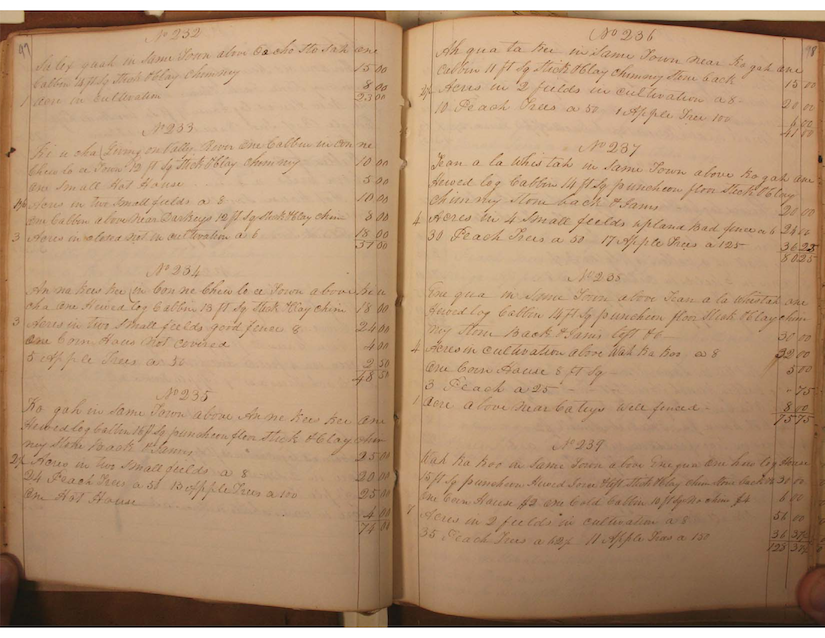 97
No 232
in Same Town above
Cabbin 14 ft Sq Stick & Clay Chimney 15 00
1 acre in Cultivation 8 00
23 00
No 233
Town one Cabbin in Con ne
Chew lo ee Town 12 ft Sq Stick & Clay chimny 10 00
one Small Hot House 5 00
Acres in two Small fields a 8 10 00
one Cabbin above Near 12 ft Sq Stick & Clay chim 8 00
3 Acres in closed not in cultivation a 6 18 00
No 234
An na kees kee in Con ne Chew lo ee Town above Ke u
cha one Hewed log Cabbin 13 ft Sq Stick & Clay chim 18 00
3 Acres in two Small fields good fence 8 24 00
one Corn House Not covered 4 00
5 Apple Trees a 50 2 50
48 50
No 235
Ko gah in Same Town above An na kees kee one
Hewed log Cabbin 16 ft Sq puncheon floor Stick & Clay chim
ney Stone back & Jams 25 00
2½ Acres in two Small fields a 8 20 00
24 Peach Trees a 50 13 Apple Trees a 100 25 00
one Hot House 4 00
74 00
98
No 236
Ah qua ta kee in Same Town Near Ko gah one
Cabbin 11 ft Sq Stick & Clay chimny Stone back 15 00
2½ Acres in 2 fields in cultivation a 8 20 00
10 Peach Trees a 50 1 Apple Tree 100 6 00
41 00
No 237
in Same Town above Ko gah one
Hewed log Cabbin 14 ft Sq puncheon floor Stick & Clay
chimny Stone back & Jams 20 00
4 Acres in 4 Small fields upland bad fence a 6 24 00
30 Peach Trees a 50 17 Apple Trees a 125 36 25
80 25
No 238
in Same Town above one
Hewed log Cabbin 14 ft Sq puncheon floor Stick & Clay chim
ny Stone Back & Jams loft &c 30 00
4 Acres in cultivation above Wah ka koo a 8 32 00
one Corn House 8 ft Sq 5 00
3 Peach a 25 75
1 Acre above Near well fenced 8 00
75 75
No 239
Wah ka koo in Same Town above one hew log House
15 ft Sq puncheon floor Stick & Clay chim Stone back 30 00
one Corn House $2 one Old Cabbin 12 ft Sq No chim $4 6 00
7 Acres in 2 fields in cultivation a 8 56 00
35 Peach Trees a 62½ 11 Apple Trees a 150